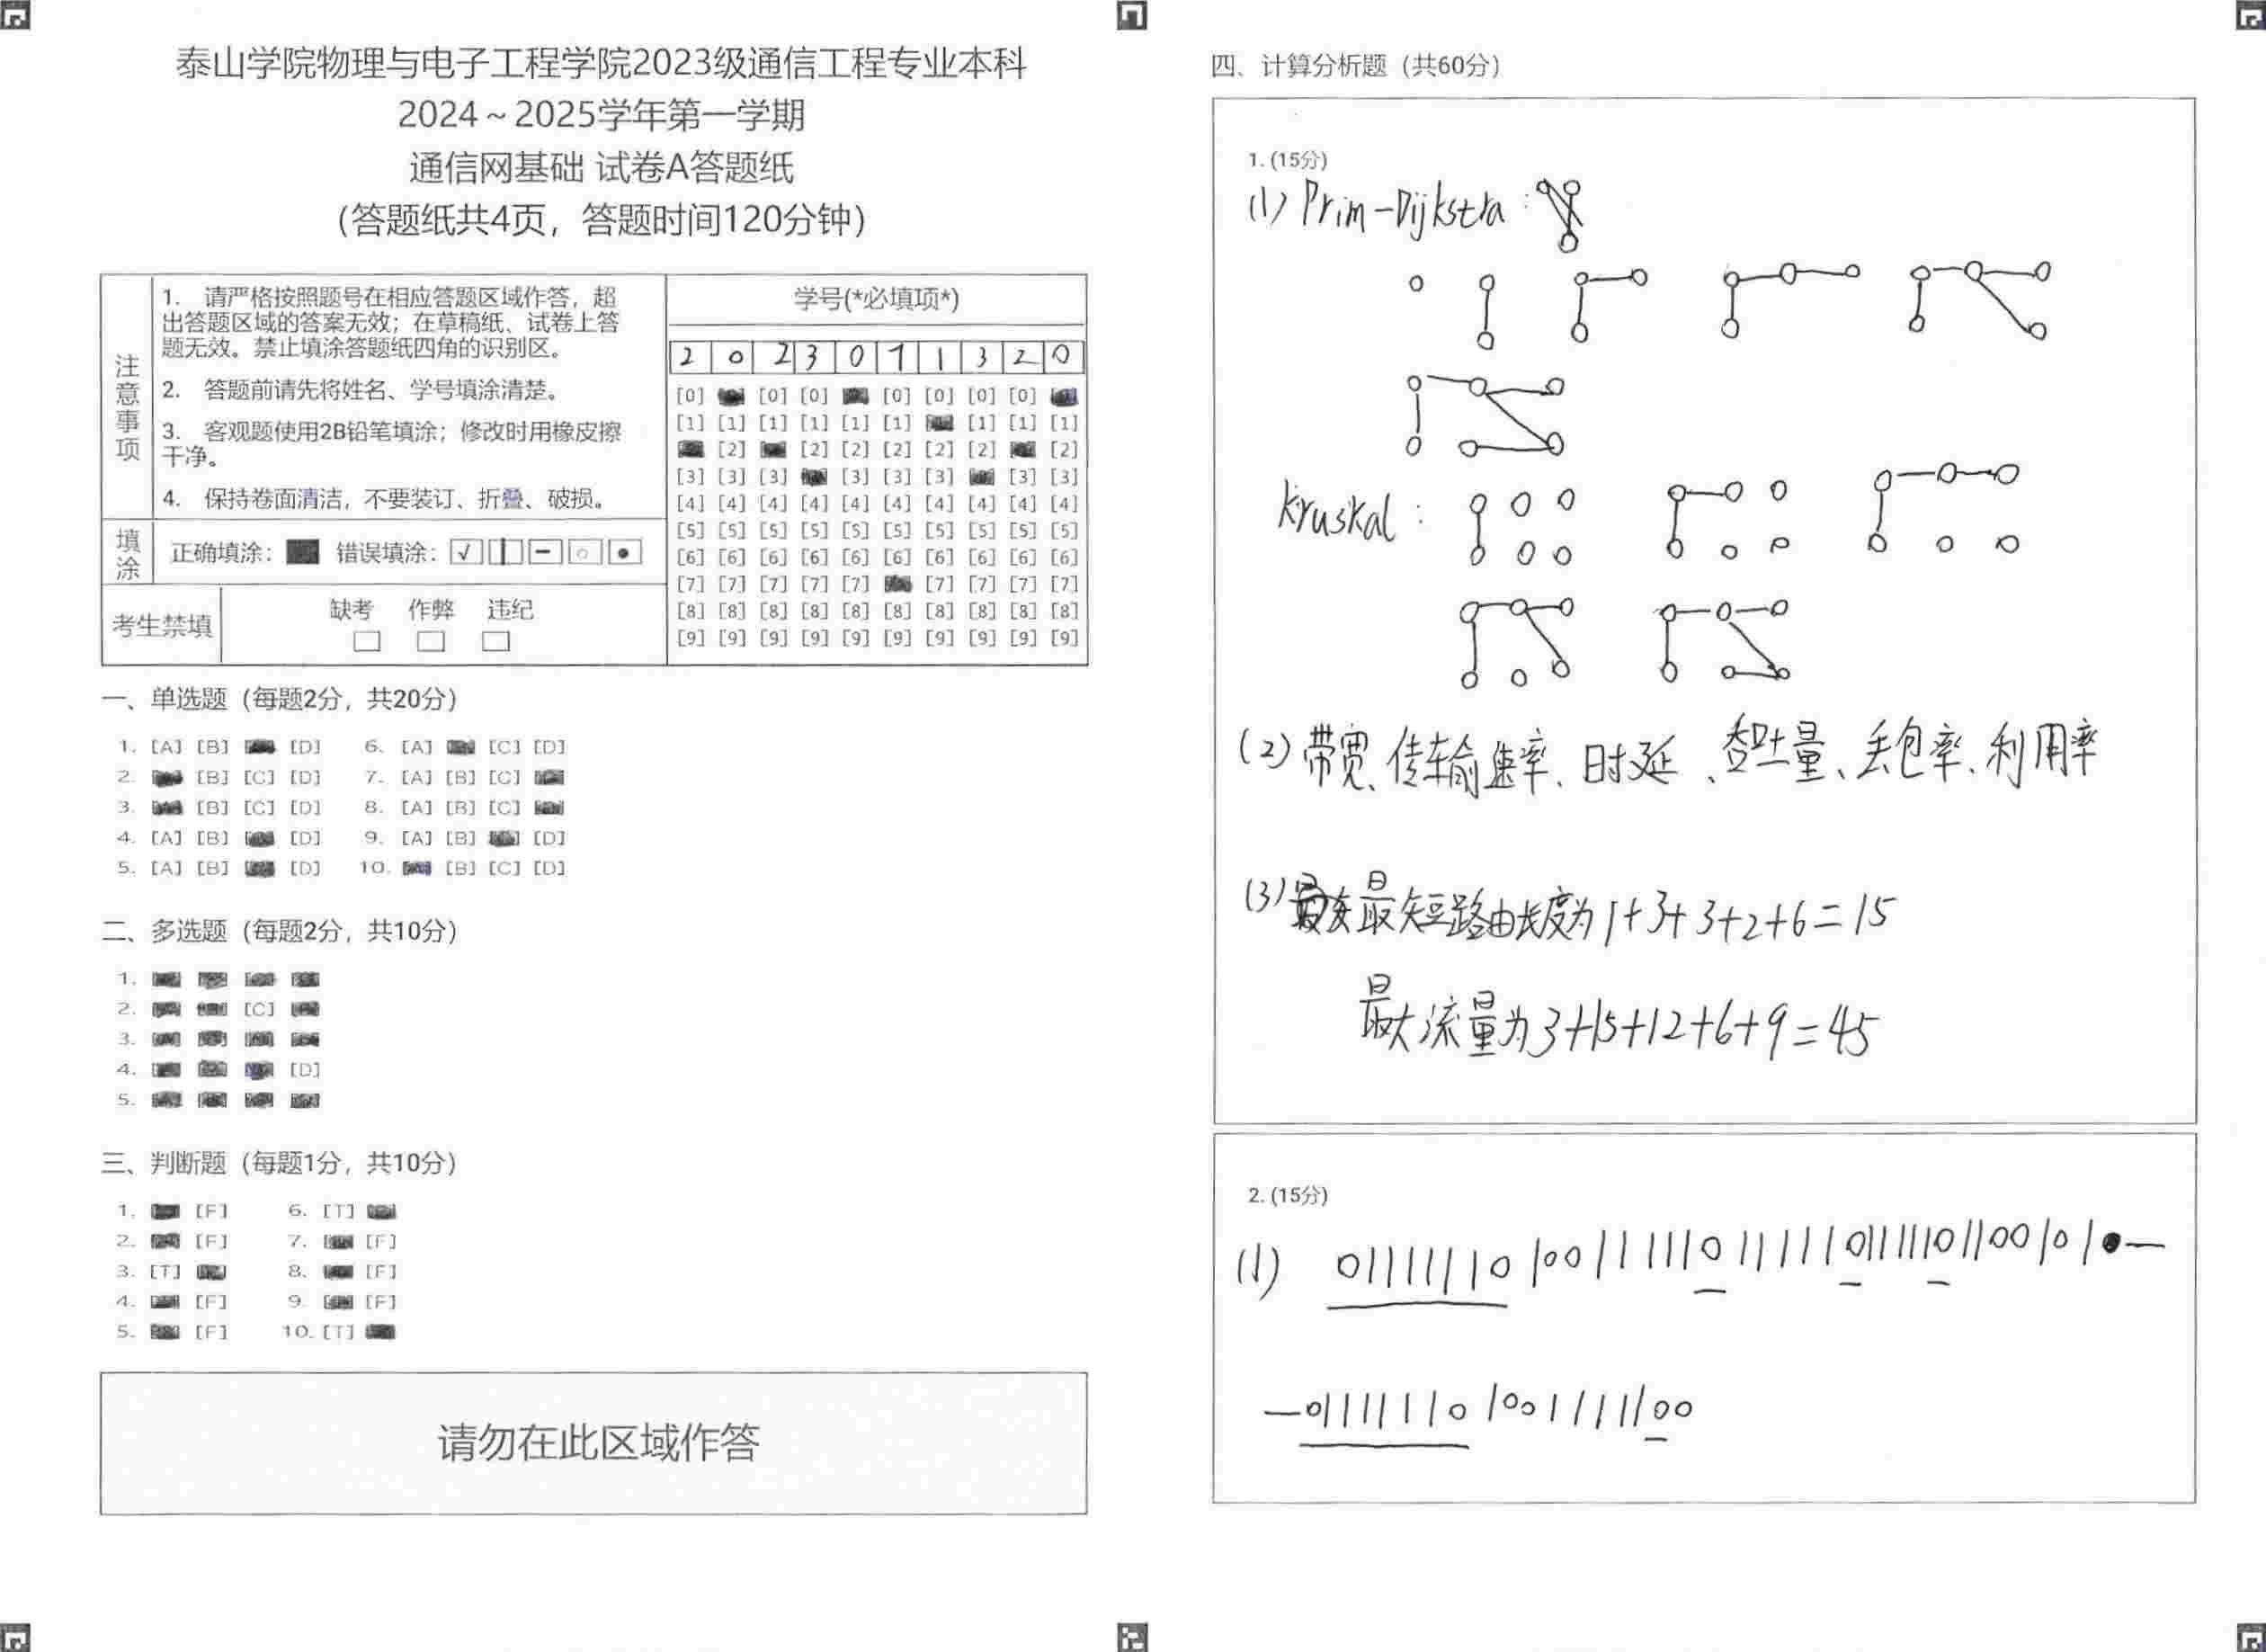 泰山学院物理与电子工程学院2023级通信工程专业本科
2024～2025学年第一学期
通信网基础 试卷A答题纸
（答题纸共4页，答题时间120分钟）
注意事项
1. 请严格按照题号在相应答题区域作答，超
出答题区域的答案无效；在草稿纸、试卷上答
题无效。禁止填涂答题纸四角的识别区。
2. 答题前请先将姓名、学号填涂清楚。
3. 客观题使用2B铅笔填涂；修改时用橡皮擦
干净。
4. 保持卷面清洁，不要装订、折叠、破损。
填涂
正确填涂： 错误填涂：
考生禁填
缺考 作弊 违纪
学号(*必填项*)
2 0 2 3 0 7 1 3 2 0
[0] [0] [0] [0] [0] [0] [0]
[1] [1] [1] [1] [1] [1] [1] [1] [1]
[2] [2] [2] [2] [2] [2] [2]
[3] [3] [3] [3] [3] [3] [3] [3]
[4] [4] [4] [4] [4] [4] [4] [4] [4] [4]
[5] [5] [5] [5] [5] [5] [5] [5] [5] [5]
[6] [6] [6] [6] [6] [6] [6] [6] [6] [6]
[7] [7] [7] [7] [7] [7] [7] [7] [7]
[8] [8] [8] [8] [8] [8] [8] [8] [8] [8]
[9] [9] [9] [9] [9] [9] [9] [9] [9] [9]
一、单选题（每题2分，共20分）
1. [A] [B] [D] 6. [A] [C] [D]
2. [B] [C] [D] 7. [A] [B] [C]
3. [B] [C] [D] 8. [A] [B] [C]
4. [A] [B] [D] 9. [A] [B] [D]
5. [A] [B] [D] 10. [B] [C] [D]
二、多选题（每题2分，共10分）
1.
2. [C]
3.
4. [D]
5.
三、判断题（每题1分，共10分）
1. [F] 6. [T]
2. [F] 7. [F]
3. [T] 8. [F]
4. [F] 9. [F]
5. [F] 10. [T]
请勿在此区域作答
四、计算分析题（共60分）
1. (15分)
(1) Prim-Dijkstra :
kruskal :
(2) 带宽、传输速率、时延、吞吐量、丢包率、利用率
(3) 最短路由长度为1+3+3+2+6=15
最大流量为3+15+12+6+9=45
2. (15分)
(1) 01111110 100111110111110111110110010 1
—01111110 1001111100